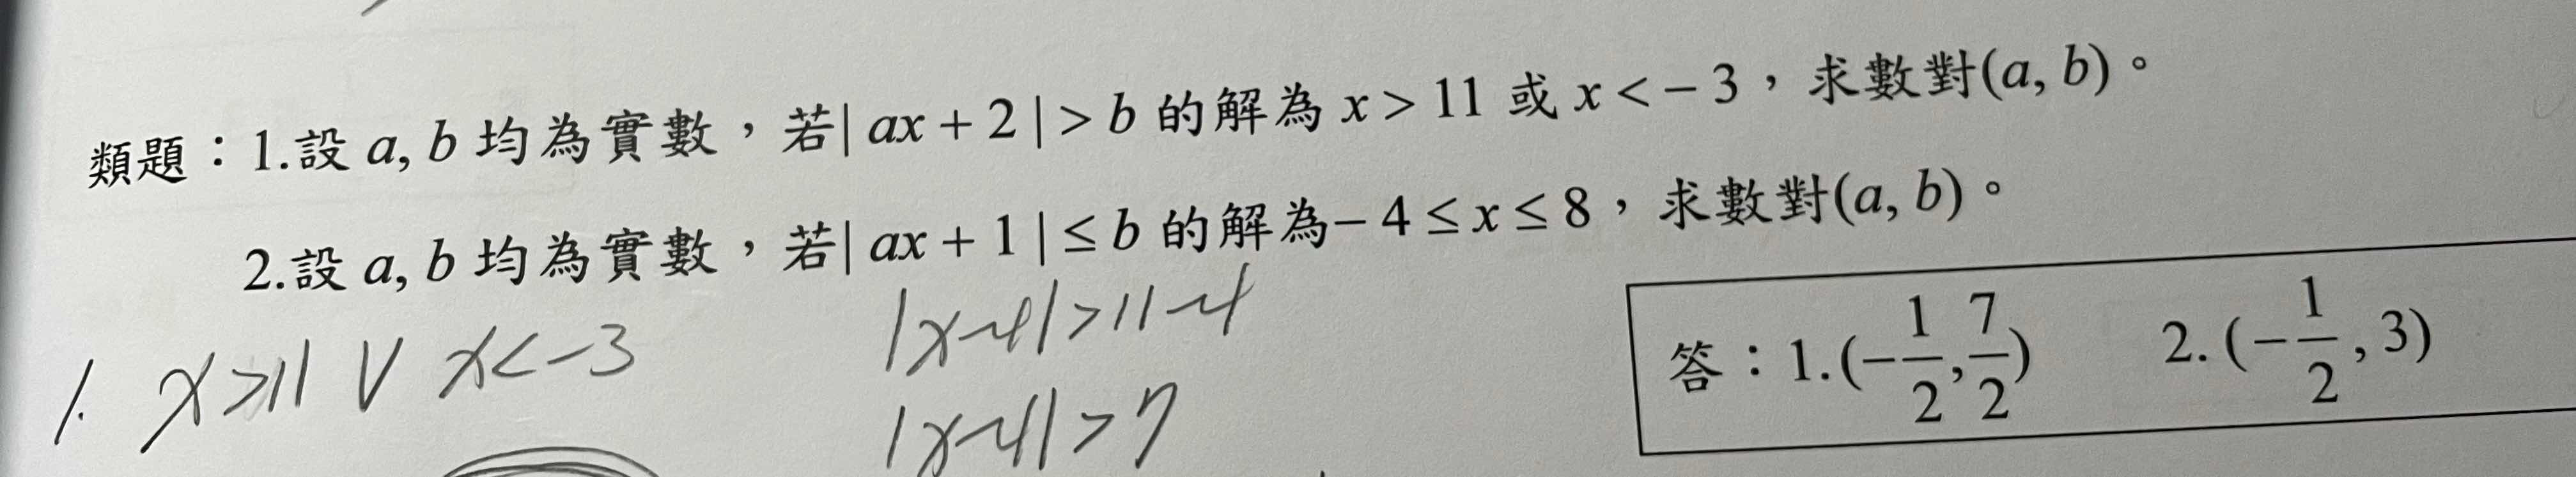 類題：1.設 a, b 均為實數，若| ax + 2 | > b 的解為 x > 11 或 x < − 3，求數對(a, b)。
2.設 a, b 均為實數，若| ax + 1 | ≤ b 的解為− 4 ≤ x ≤ 8，求數對(a, b)。
1. x>11 ∨ x<-3
|x-4|>11-4
|x-4|>7
答：1.(−1/2, 7/2) 2.(−1/2, 3)